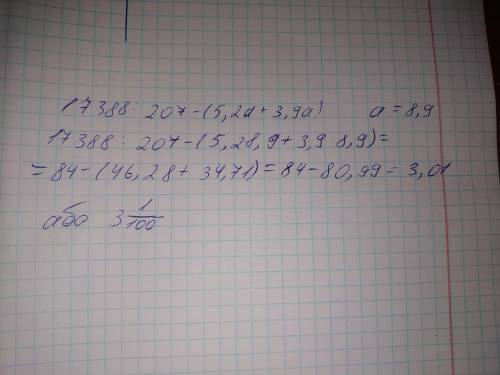 17388 : 207 - (5,2a + 3,9a) a = 8,9
17388 : 207 - (5,28,9 + 3,9 8,9) =
= 84 - (46,28 + 34,71) = 84 - 80,99 = 3,01
або 3 1/100